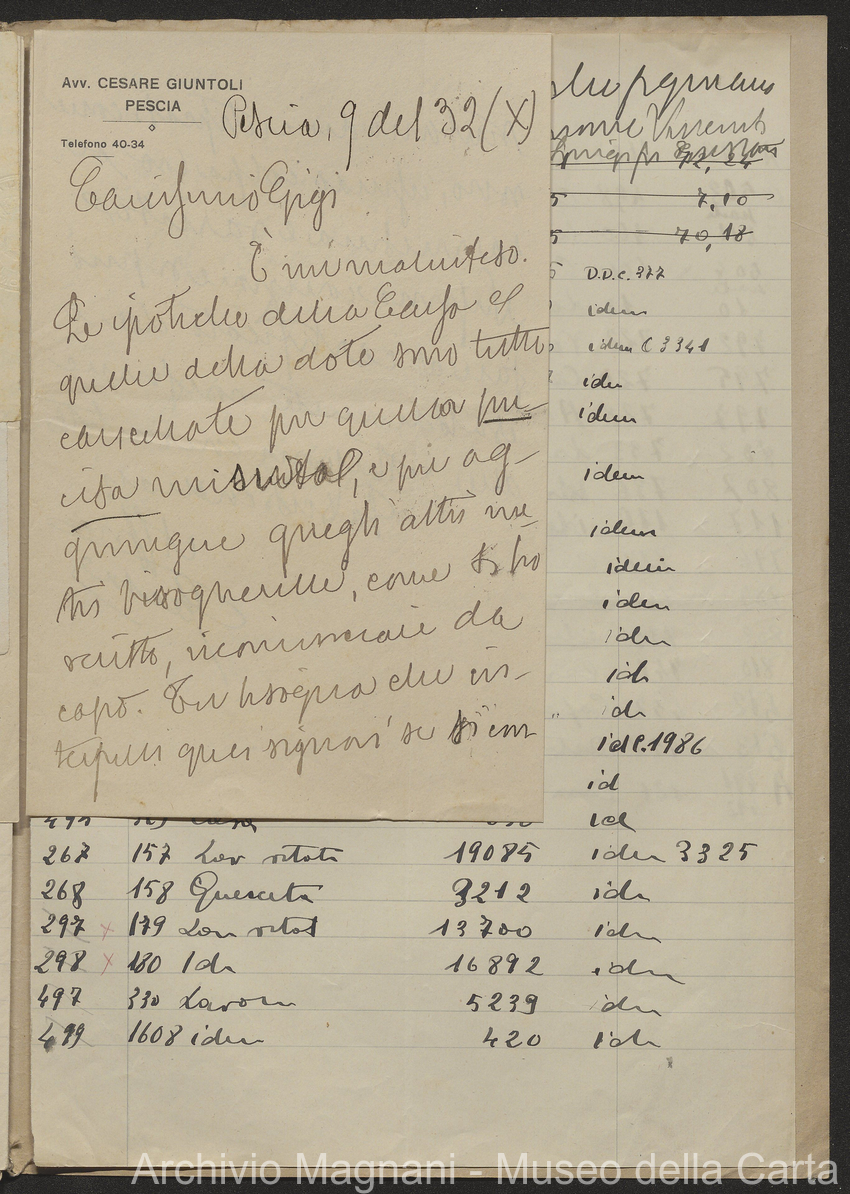 Avv. CESARE GIUNTOLI
PESCIA
Telefono 40-34
Pescia, 9 del 32 (X)
Carissimo Gigi
È un malinteso.
Le ipoteche della Cassa e
quelle della dote sono tutte
cancellate per quella pre-
cisa
e per ag-
giungere quegli altri
bisognerebbe, come ti ho
scritto, ricominciare da
capo. Tu bisogna che in-
terpelli quei signori se
72,24
5 7,10
5 70,18
5 D.D.C. 377
idem
idem C 3341
idem
idem
idem
idem
idem
idem
idem
id
id
id C. 1986
id
id
267 157 Lav vitata 19085 idem 3325
268 158 Querceta 3212 idem
297 x 179 Lav vitat 13700 idem
298 x 180 Id 16892 idem
497 330 Lavora 5239 idem
499 1608 idem 420 id
Archivio Magnani - Museo della Carta